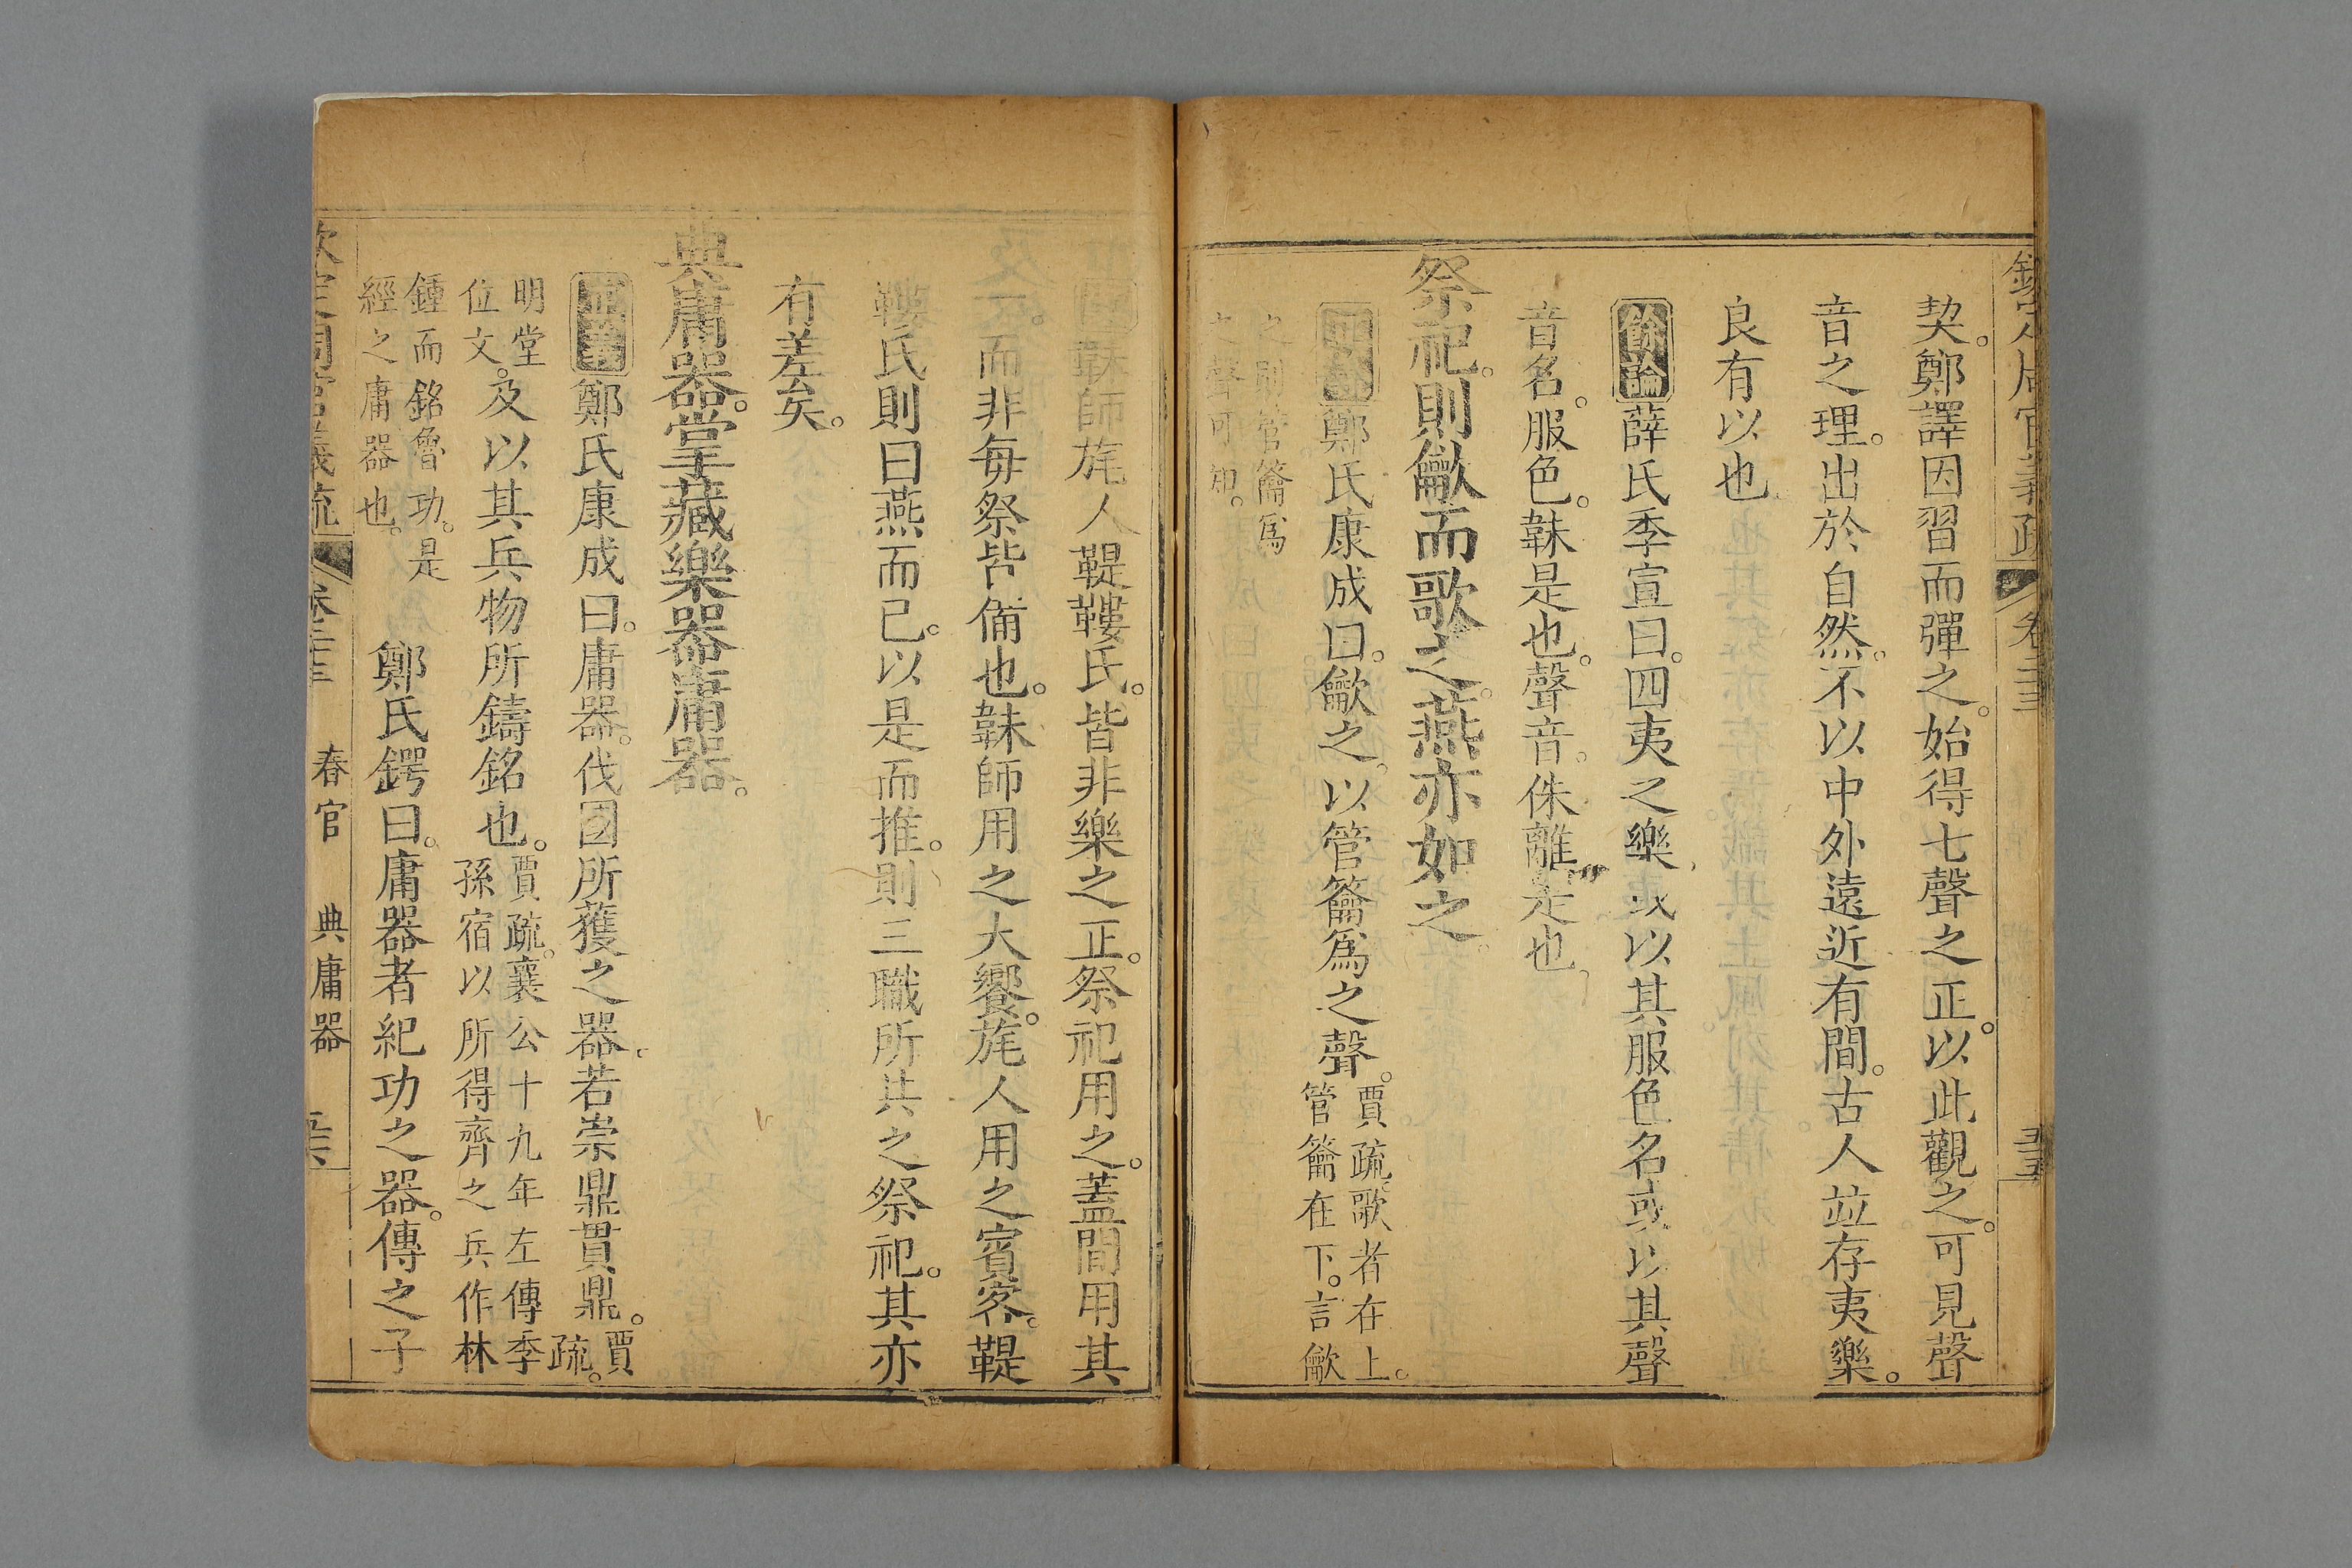 欽定周官義疏 卷二十三 五十五
契。鄭譯因習而彈之。始得七聲之正。以此觀之。可見聲
音之理。出於自然。不以中外遠近有間。古人竝存夷樂。
良有以也
餘論薛氏季宣曰。四夷之樂或以其服色名或以其聲
音名。服色。韎是也。聲音。侏離是也
祭祀。則龡而歌之。燕亦如之。
鄭氏康成曰。龡之。以管籥爲之聲。
賈疏。歌者在上。
管籥在下。言龡
之則管籥爲
之聲可知。
韎師旄人鞮鞻氏。皆非樂之正。祭祀用之。蓋間用其
一。而非每祭皆備也。韎師用之大饗。旄人用之賓客。鞮
鞻氏則曰燕而已。以是而推。則三職所共之祭祀。其亦
有差矣。
典庸器。掌藏樂器庸器。
鄭氏康成曰。庸器。伐國所獲之器。若崇鼎貫鼎。
賈
疏。
明堂
位文。
及以其兵物所鑄銘也。
賈疏。襄公十九年左傳季
孫宿以所得齊之兵作林
鍾而銘魯功。是
經之庸器也。
鄭氏鍔曰。庸器者紀功之器。傳之子
欽定周官義疏 卷二十三 春官 典庸器 五十六